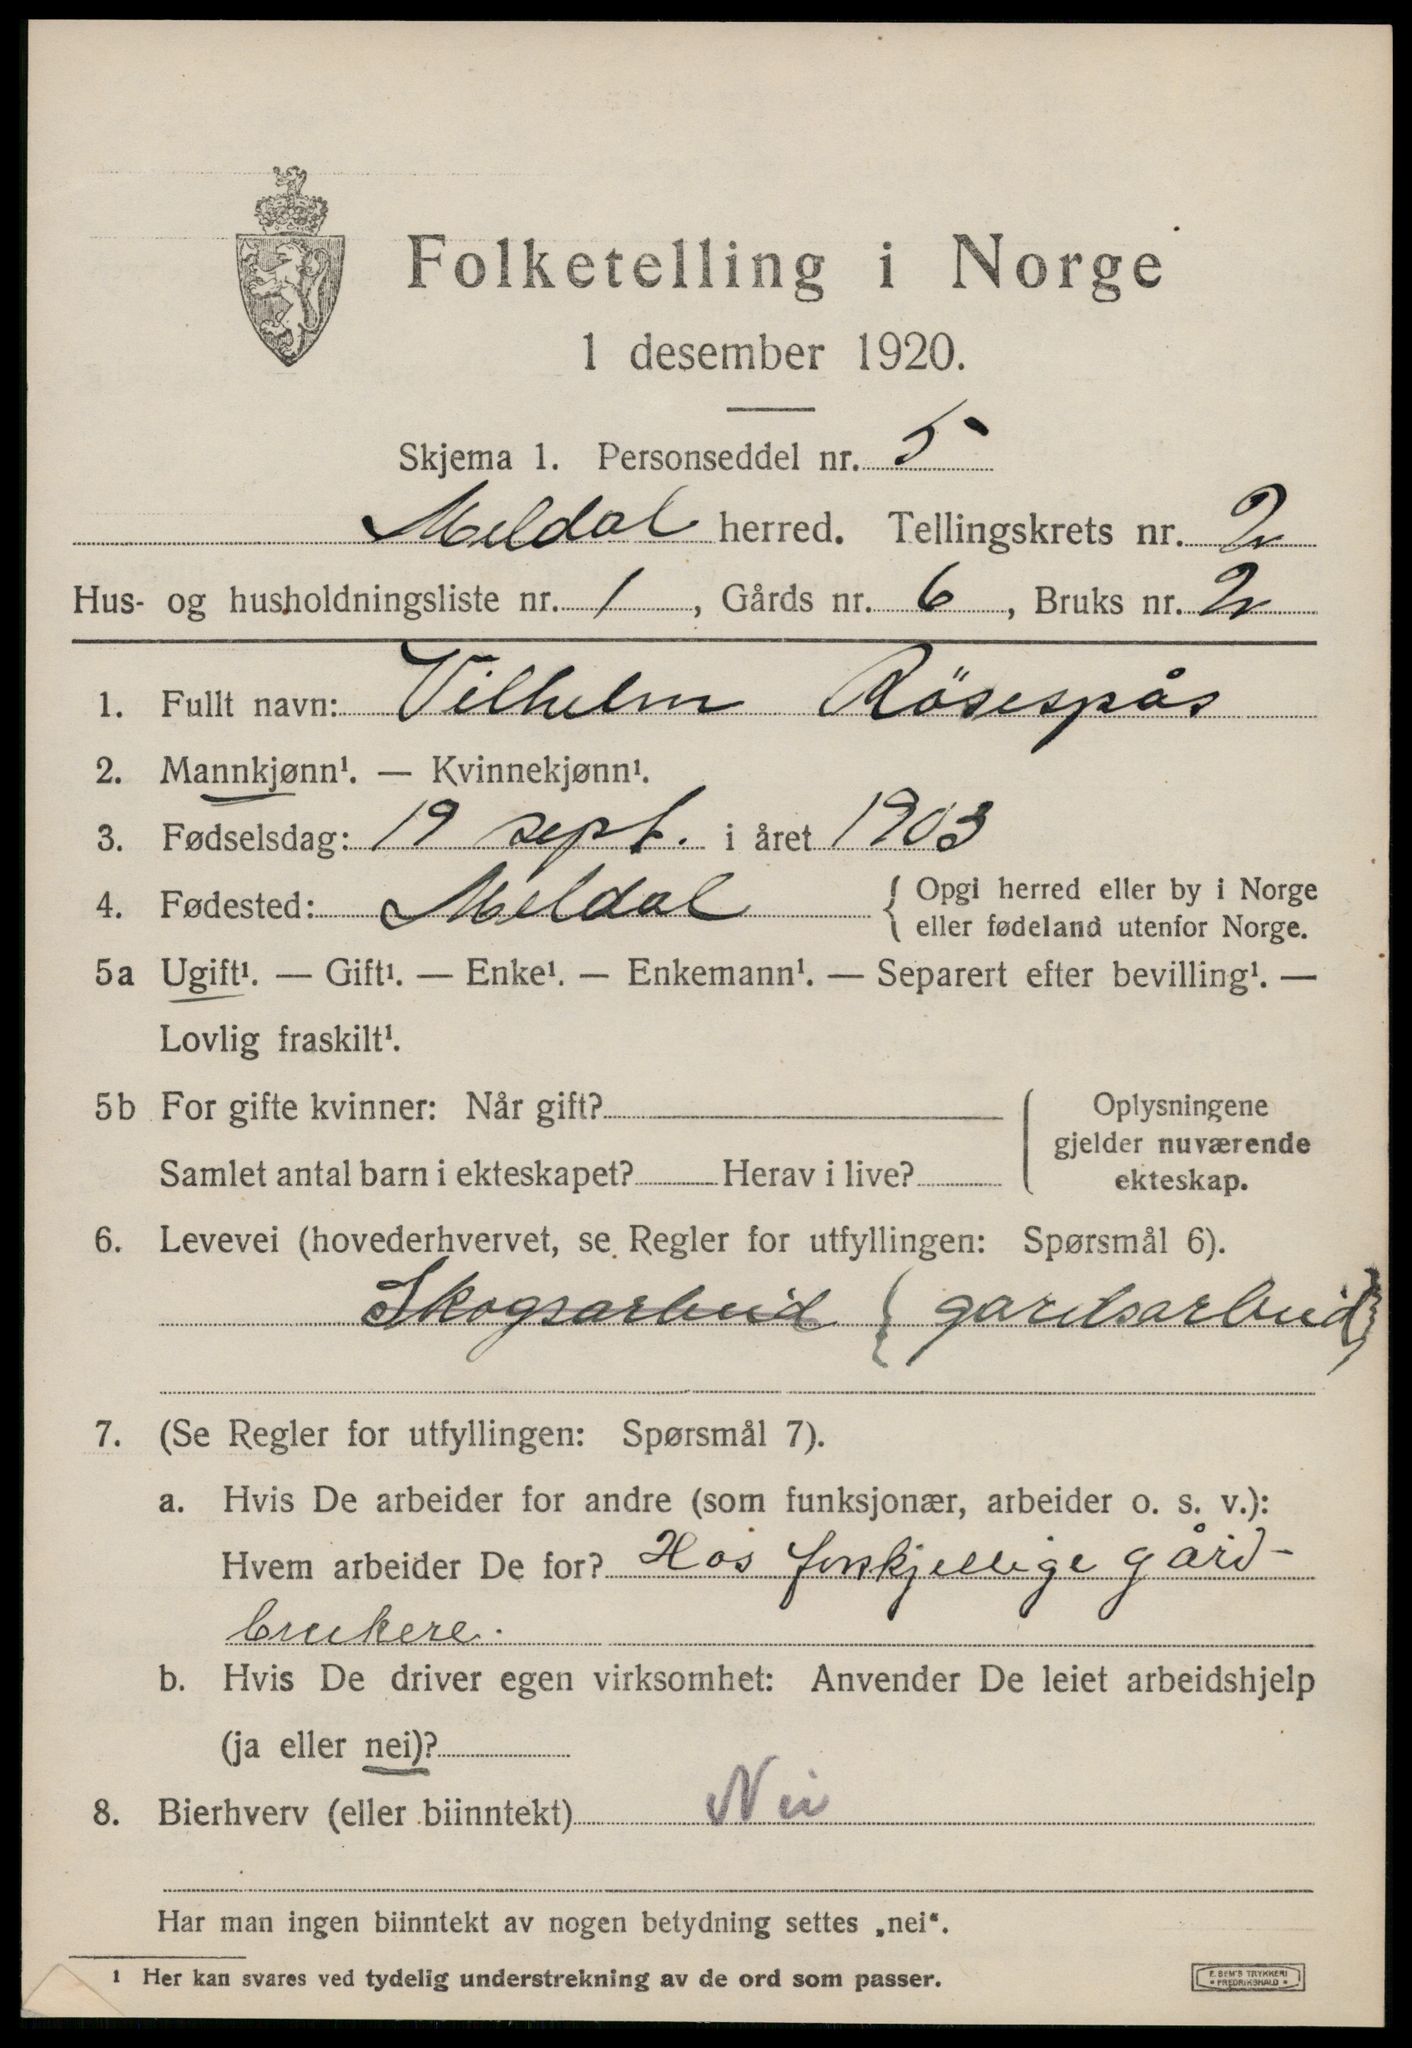 Folketelling i Norge
1 desember 1920.
Skjema 1. Personseddel nr. 5
Meldal herred. Tellingskrets nr. 2
Hus- og husholdningsliste nr. 1, Gårds nr. 6, Bruks nr. 2
1. Fullt navn: Vilhelm Røsespås
2. Mannkjønn¹. — Kvinnekjønn¹.
3. Fødselsdag: 19 sept. i året 1903
4. Fødested: Meldal { Opgi herred eller by i Norge
eller fødeland utenfor Norge.
5a Ugift¹. — Gift¹. — Enke¹. — Enkemann¹. — Separert efter bevilling¹. —
Lovlig fraskilt¹.
5b For gifte kvinner: Når gift?
Samlet antal barn i ekteskapet? Herav i live?
Oplysningene
gjelder nuværende
ekteskap.
6. Levevei (hovederhvervet, se Regler for utfyllingen: Spørsmål 6).
Skogsarbeid { gardsarbeid }
7. (Se Regler for utfyllingen: Spørsmål 7).
a. Hvis De arbeider for andre (som funksjonær, arbeider o. s. v.):
Hvem arbeider De for? Hos forskjellige gård-
brukere.
b. Hvis De driver egen virksomhet: Anvender De leiet arbeidshjelp
(ja eller nei)?
8. Bierhverv (eller biinntekt) Nei
Har man ingen biinntekt av nogen betydning settes „nei“.
1 Her kan svares ved tydelig understrekning av de ord som passer.
E. SEM'S TRYKKERI
• FREDRIKSHALD •